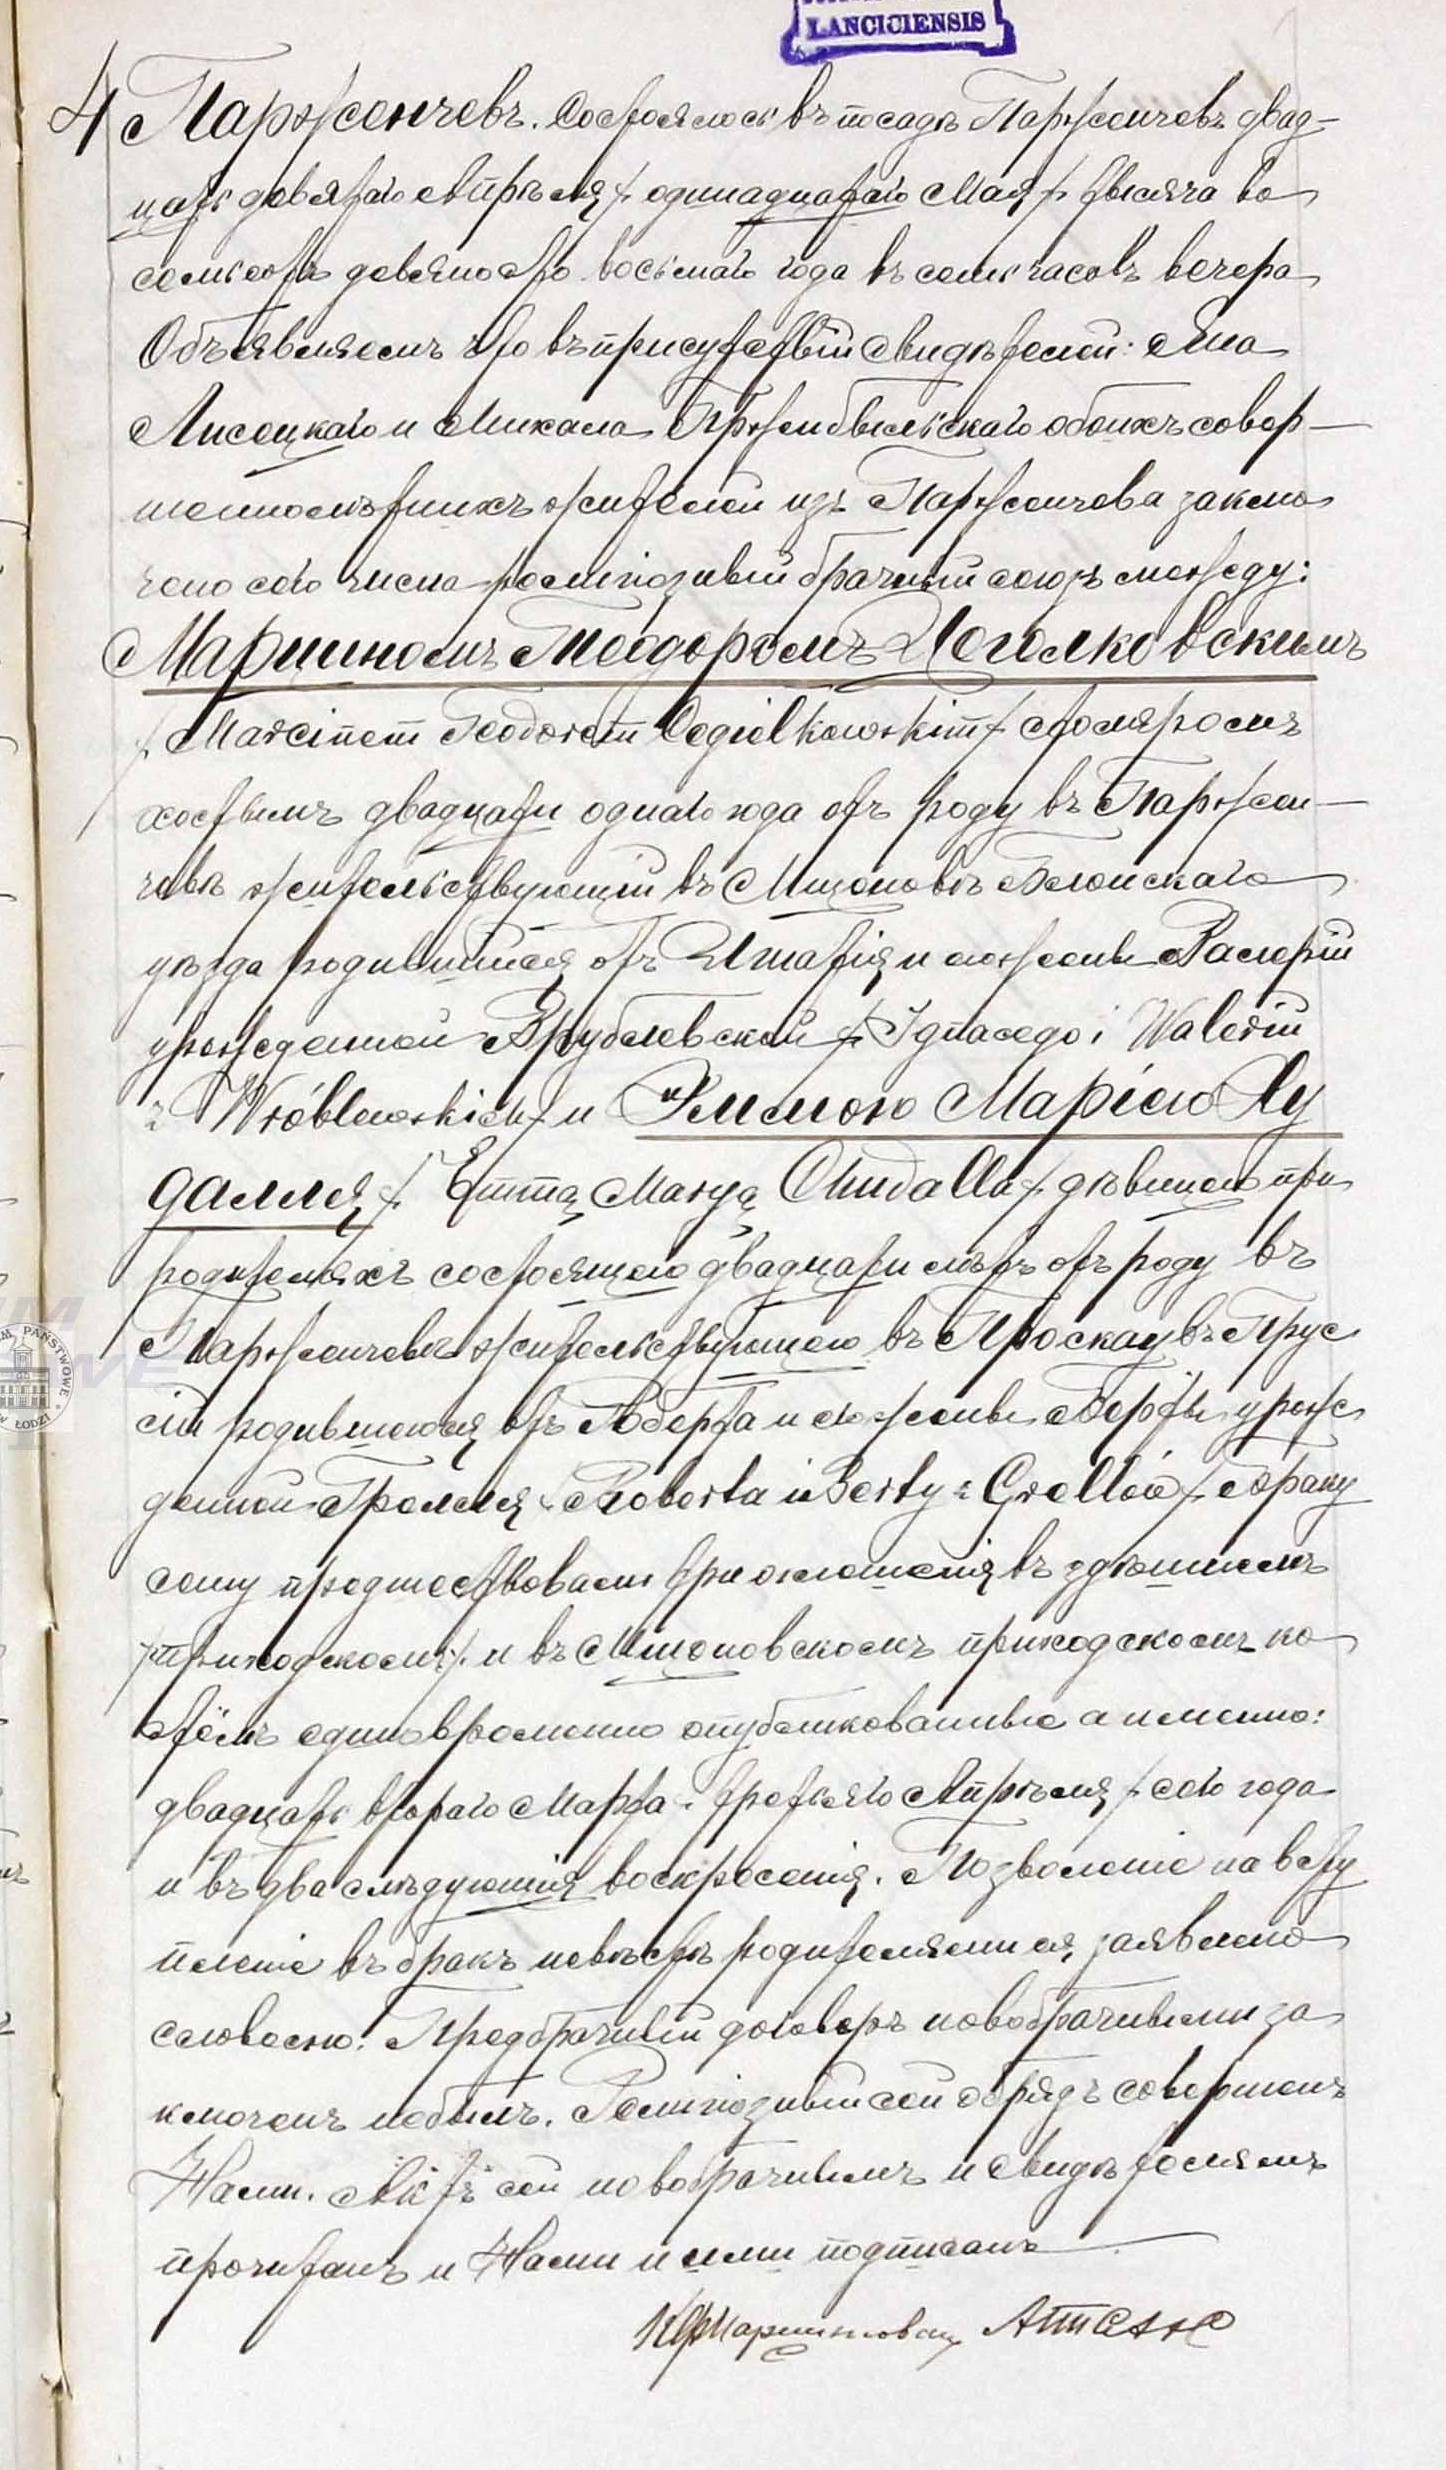 LANCICIENSIS
4 Парженчевъ. Состоялось въ посадѣ Парженчевъ двад-
цать девятаго Апрѣля /: одинадцатаго Мая /: тысяча во
семьсотъ девяносто восьмаго года въ семь часовъ вечера
Объявляемъ что въ присутствіи свидѣтелей: Яна
Лисецкаго и Михала Пржибыльскаго обоихъ совер-
шеннолѣтнихъ жителей изъ Парженчева заклю
чено сего числа религіозный брачный союзъ между:
Марциномъ Теодоромъ Цегелковскимъ
/: Marcinem Teodorem Cegielkowskim /: столяромъ
холостымъ двадцати одного года отъ роду въ Паржен-
чевѣ жительствующій въ Мщоновѣ Блонскаго
уѣзда родившійся отъ Игнатія и жены Валеріи
урожденной Врублевской /: Ignacego i Walerii
z Wróblewskich /: и Эммою Маріею Ху
далля /: Emmą Maryą Chudalla /: дѣвицею при
родителяхъ состоящею двадцати лѣтъ отъ роду въ
Парженчевѣ жительствующею въ Проскау въ Прус
сіи родившеюся отъ Роберта и жены Берты урож
денной Грелля /: Roberta i Berty z Grellów /: браку
сему предшествовали три оглашенія въ здѣшнемъ
/: приходскомъ /: и въ Мщоновскомъ приходскомъ ко
стёлѣ единовременно опубликованные а именно:
двадцать втораго Марта /: третьяго Апрѣля /: сего года
и въ два слѣдующія воскресенія. Позволеніе на всту
пленіе въ бракъ невѣстѣ родителями ея, заявлено
словесно. Предбрачный договоръ новобрачными за
ключенъ небылъ. Религіозный сей обрядъ совершенъ
Нами. Актъ сей новобрачнымъ и свидѣтелямъ
прочитанъ и Нами и ими подписанъ